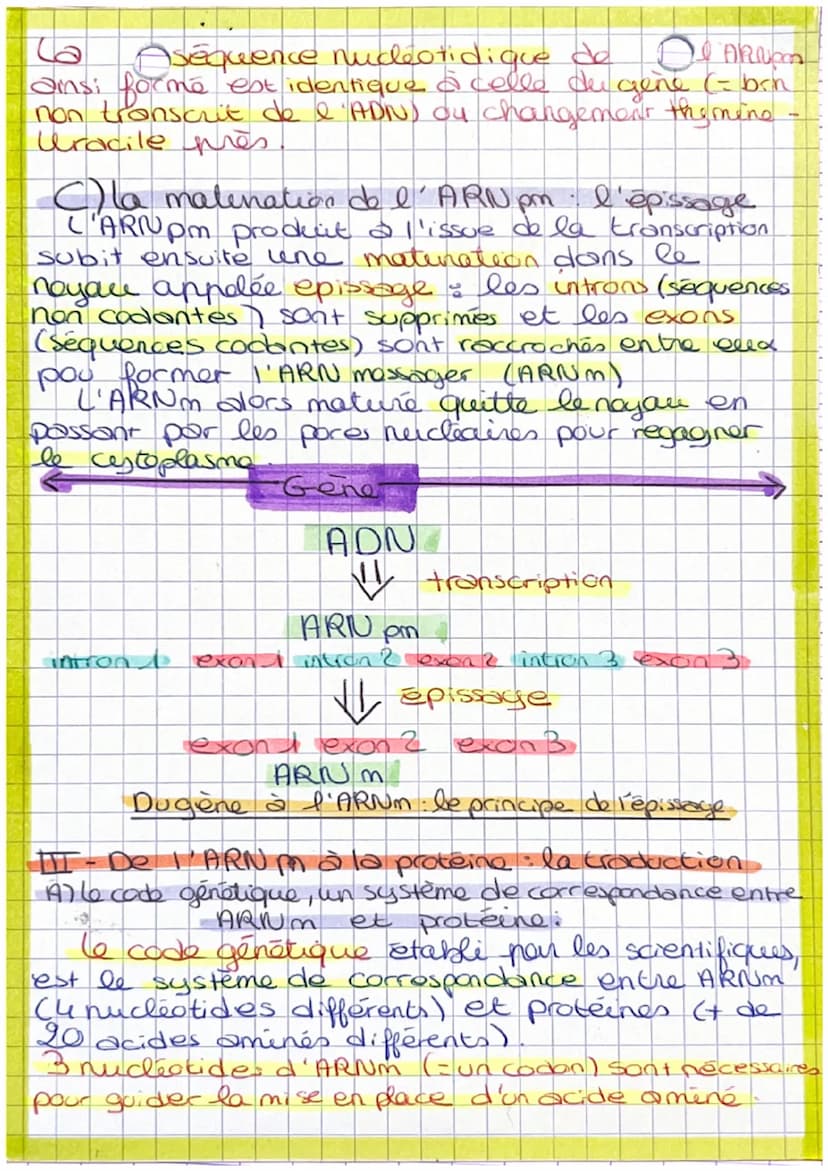 La séquence nucléotidique de l'ARNpm
ainsi formé est identique à celle du gène (= brin
non transcrit de l'ADN) au changement thymine -
Uracile près.
C) la maturation de l'ARN pm : l'épissage
L'ARN pm produit à l'issue de la transcription
subit ensuite une maturation dans le
noyau appelée epissage : les introns (séquences
non codantes) sont supprimés et les exons
(séquences codantes) sont raccrochés entre eux
pou former l'ARN messager (ARNm)
L'ARNm alors mature quitte le noyau en
passant par les pores nucléaires pour regagner
le cytoplasme.
Gène
ADN
transcription
ARN pm
intron 1 exon 1 intron 2 exon 2 intron 3 exon 3
épissage
exon 1 exon 2 exon 3
ARN m
Du gène à l'ARNm : le principe de l'épissage
III - De l'ARN m à la protéine : la traduction
A) le code génétique, un système de correspondance entre
ARNm et protéine :
Le code génétique établi par les scientifiques,
est le système de correspondance entre ARNm
(4 nucléotides différents) et protéines (+ de
20 acides aminés différents).
3 nucléotides d'ARNm (= un codon) sont nécessaires
pour guider la mise en place d'un acide aminé.